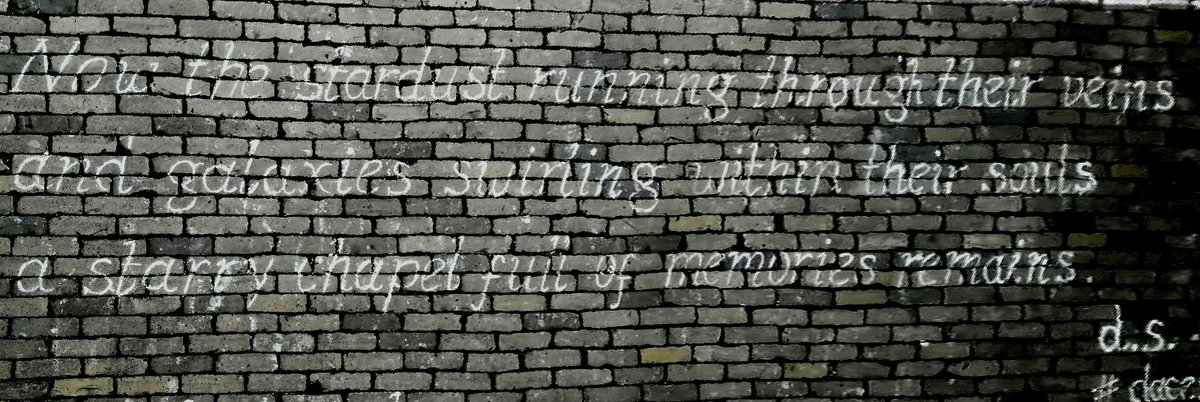 Now the stardust running through their veins
and galaxies swirling within their souls
a starry chapel full of memories remains.
d..s.